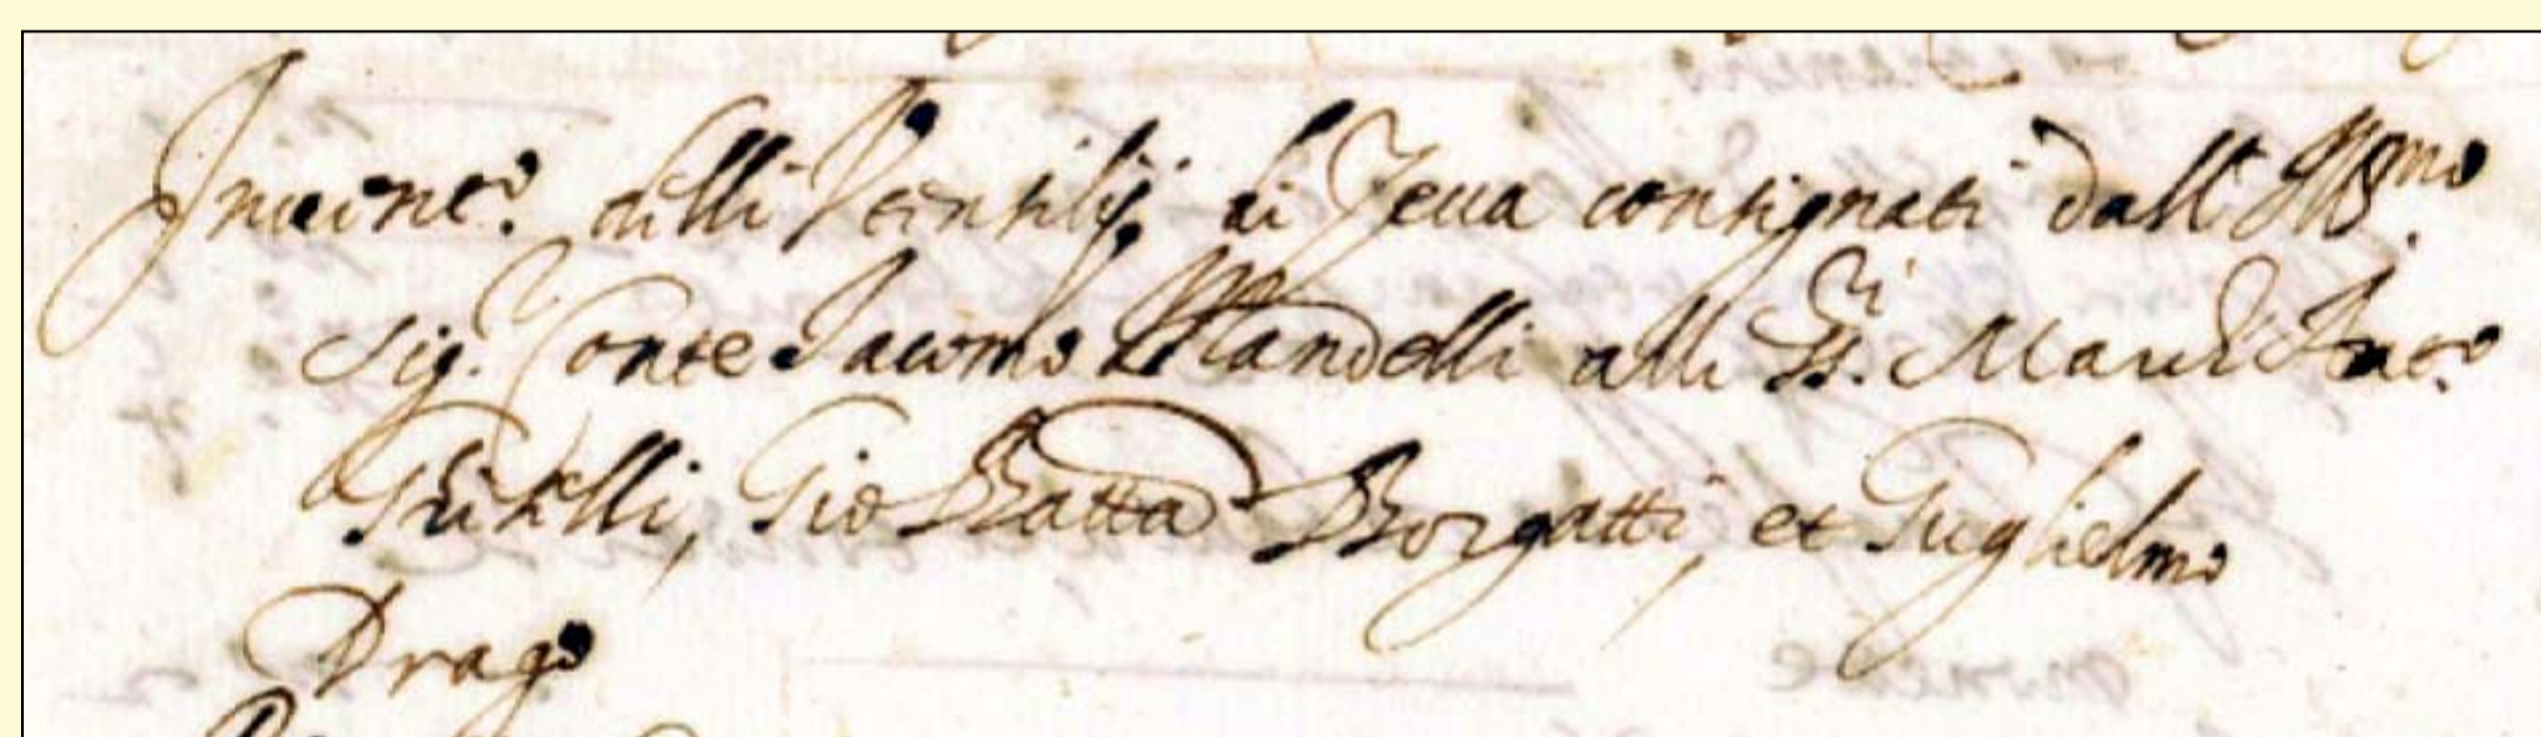 Inuent.º delli Utensilij di Zecca consignati dall Ill.mo
Sig. Conte Jacomo Mandelli alli SS.ri Marc' Ant.º
Gio Batta Borgatti, et Guglielmo
Drago